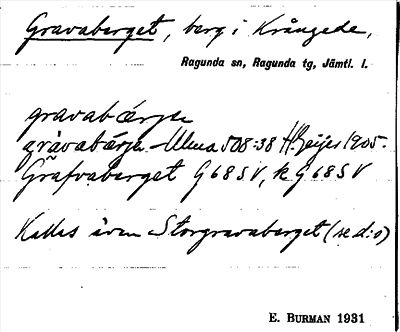 Gravaberget, berg i Krångede,
Ragunda sn, Ragunda tg, Jämtl. l.
gravabærje
gràvabárje Ulma 508:38 H. Geijer 1905.
Gräfvaberget G68SV, k G68SV
Kallas även Storgravaberget (se d:o)
E. BURMAN 1931